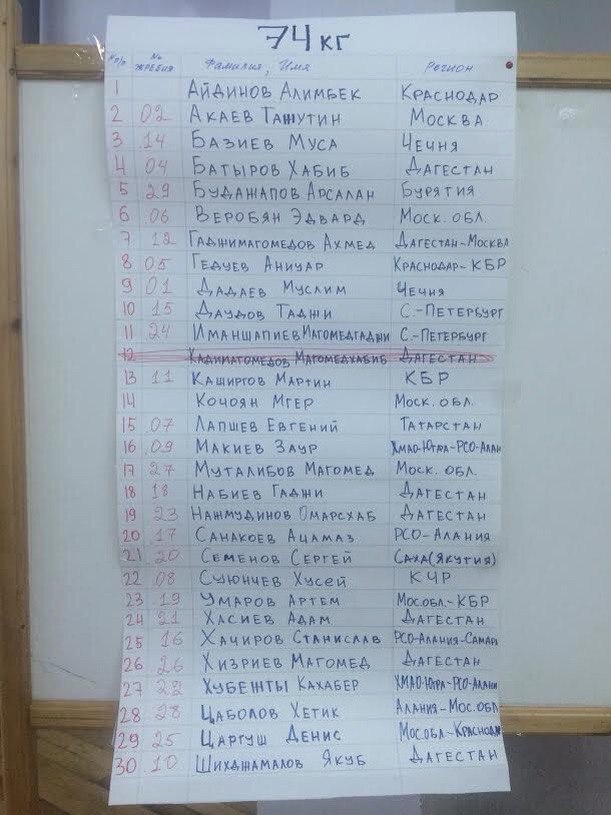 74 кг
№ п/р № жребия Фамилия, Имя Регион
1 Айдинов Алимбек Краснодар
2 02 Акаев Ташутин Москва
3 14 Базиев Муса Чечня
4 04 Батыров Хабиб Дагестан
5 29 Будажапов Арсалан Бурятия
6 06 Веробян Эдвард Моск. обл.
7 12 Гаджимагомедов Ахмед Дагестан-Москва
8 05 Гедуев Аниуар Краснодар-КБР
9 01 Дадаев Муслим Чечня
10 15 Даудов Таджи С.-Петербург
11 24 Иманшапиев Магомедгаджи С.-Петербург
12 Кадимагомедов Магомедхабиб Дагестан
13 11 Каширгов Мартин КБР
14 Кочоян Мгер Моск. обл.
15 07 Лапшев Евгений Татарстан
16 09 Макиев Заур ХМАО-Югра-РСО-Алан
17 27 Муталибов Магомед Моск. обл.
18 18 Набиев Гаджи Дагестан
19 23 Нажмудинов Омарсхаб Дагестан
20 17 Санакоев Ацамаз РСО-Алания
21 20 Семенов Сергей Саха(Якутия)
22 08 Суюнчев Хусей КЧР
23 19 Умаров Артем Мос.обл.-КБР
24 21 Хасиев Адам Дагестан
25 16 Хачиров Станислав РСО-Алания-Самара
26 26 Хизриев Магомед Дагестан
27 22 Хубежты Кахабер ХМАО-Югра-РСО-Алани
28 28 Цаболов Хетик Алания-Мос.обл
29 25 Царгуш Денис Мос.обл-Краснодар
30 10 Шихджамалов Якуб Дагестан